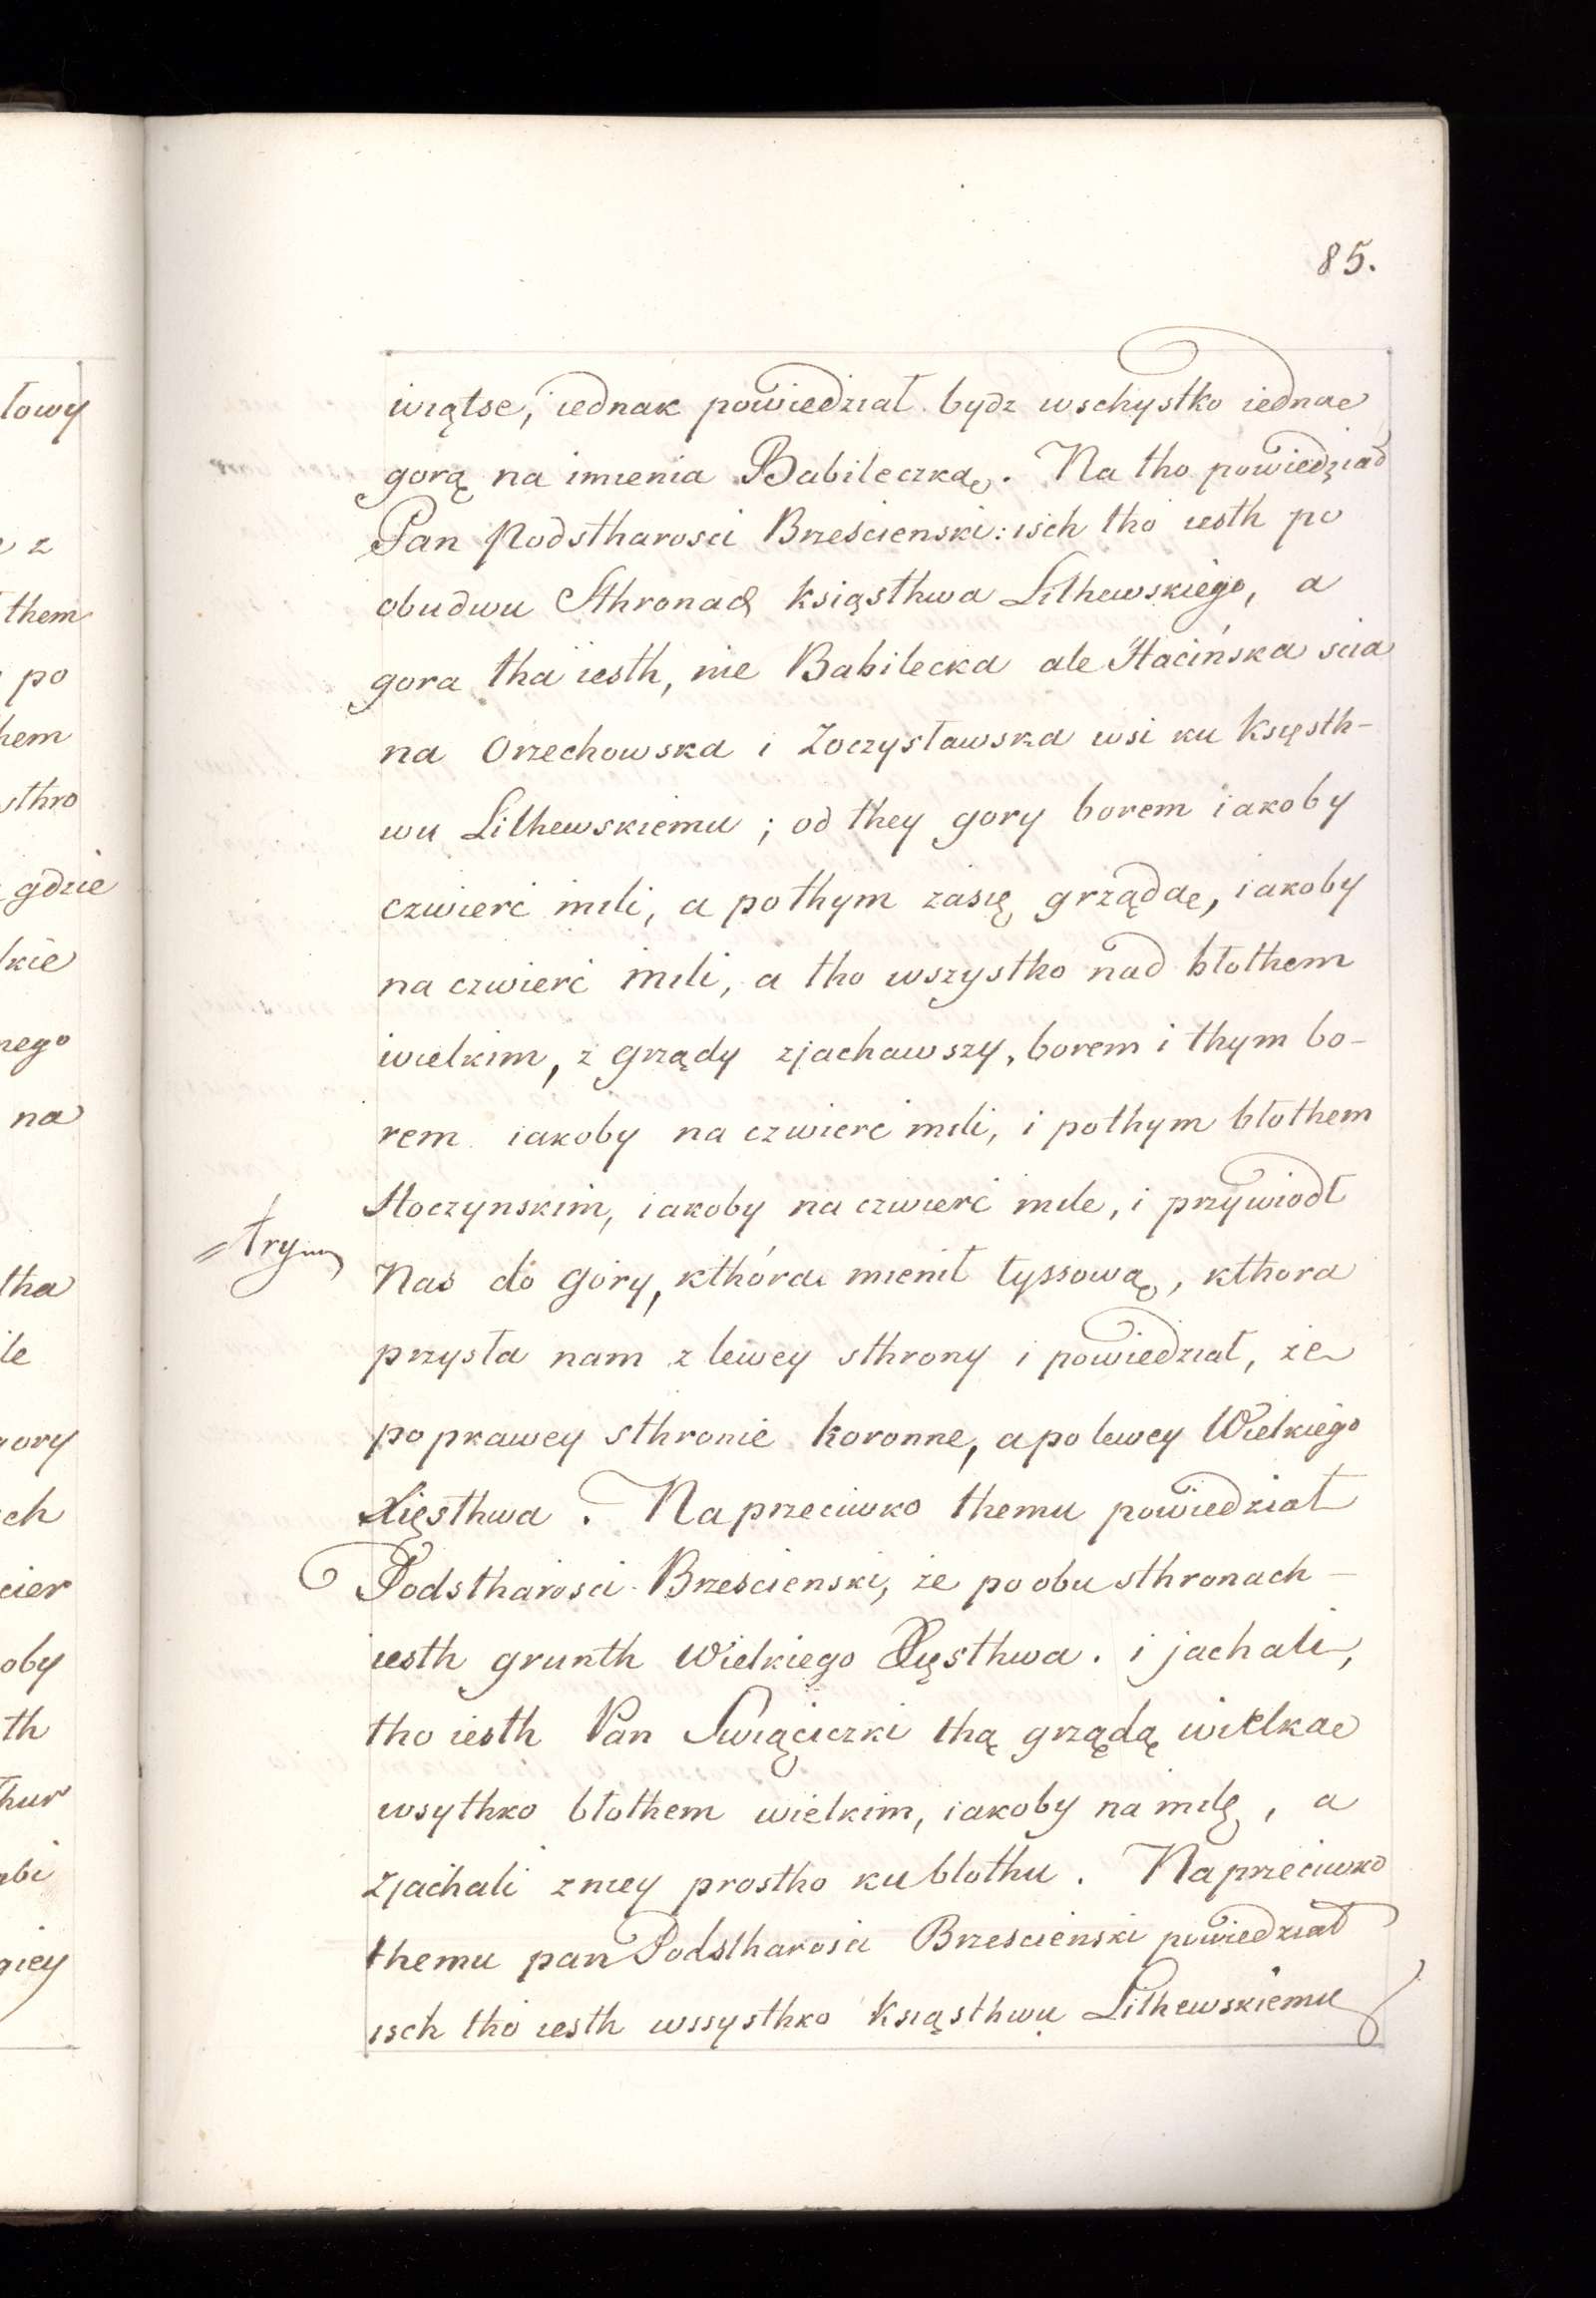 85.
iviątse, iednak powiedział bydz wschystko iednae
gorą na imienia Babileczką. Na tho powiedział
Pan Podstharosci Brzescienski: isch tho iesth po
obudwu Sthronach ksiąsthwa Lithewskiego, a
gora tha iesth, nie Babilecka ale Hacińska scia
na Orzechowska i Zoczysławska wsi ku Księsth-
wu Lithewskiemu; od they gory borem iakoby
czwierc mili, a pothym zasię grządae, iakoby
na czwierć mili, a tho wszystko nad błothem
wielkim, z grządy zjachawszy, borem i thym bo-
rem iakoby na czwierc mili, i pothym błothem
Hoczynskim, iakoby na czwierć mile, i przywiodł
Nas do góry, kthóra mienił łyssową, kthora
przysła nam z lewey sthrony i powiedział, że
po prawey sthronie koronne, a po lewey Wielkiego
Xięsthwa. Naprzeciwko themu powiedział
Podstharosci Brzescienski, że po obu sthronach –
iesth grunth Wielkiego Xięsthwa. i jachali,
tho iesth Pan Swiąciczki thą grządą wielkae
wsythko błothem wielkim, iakoby na milę, a
zjachali z niey prostho ku błothu. Naprzeciwko
themu pan Podstharosci Brzescienski powiedział
isch tho iesth wssysthko Ksiąsthwu Lithewskiemu
towy
z
them
po
hem
sthro
gdzie
kie
nego
na
tha
le
gory
ch
cier
oby
th
hur
bi
giey